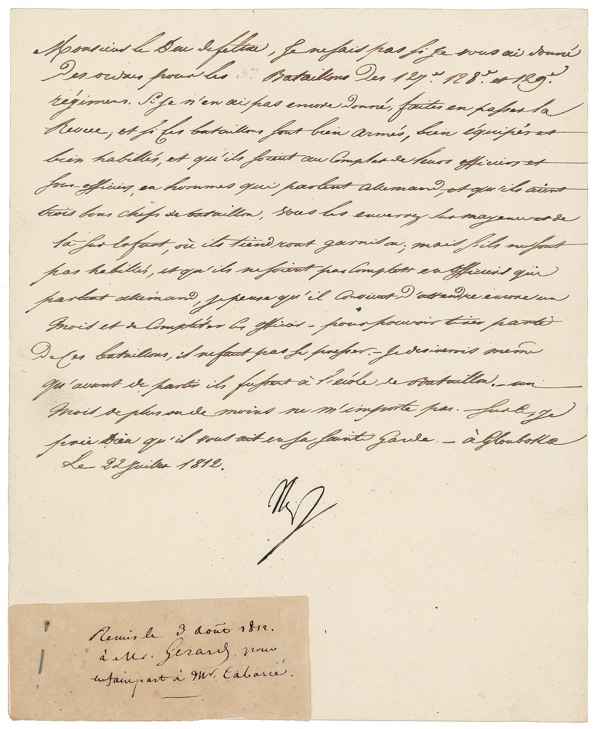 Monsieur le Duc de feltre, Je ne sais pas si Je vous ai donné
Des ordres pour les Bataillons Des 127e. 128e. et 129e.
régimens. Si Je n'en ai pas encore donné, faites en passer la
Revue, et si Ces bataillons sont bien armés, bien équipés et
bien habillés, et qu'ils soient au Complet de leurs officiers et
sous-officiers, en hommes qui parlent allemand, et qu'ils aient
trois bons chefs de bataillon, vous les enverrez sur mayence et de
là sur , où ils tiendront garnison; mais s'ils ne sont
pas habillés, et qu'ils ne soient pas Complets en officiers qui
parlent allemand, je pense qu'il Convient D'attendre encore un
Mois et de Compléter les officiers - pour pouvoir tirer partie
De Ces bataillons, il ne faut pas se presser. - Je desirerois même
qu'avant de partir ils fussent à l'école de Bataillon. - un
Mois de plus ou de moins ne m'importe pas. - Sur ce, Je
prie Dieu qu'il vous ait en sa Saint Garde. - à Gloubokoe
Le 22 juillet 1812.
Np
Remis le 3 août 1812.
à Mr. Gerard, nous
en faire part à Mr. Tabarié.